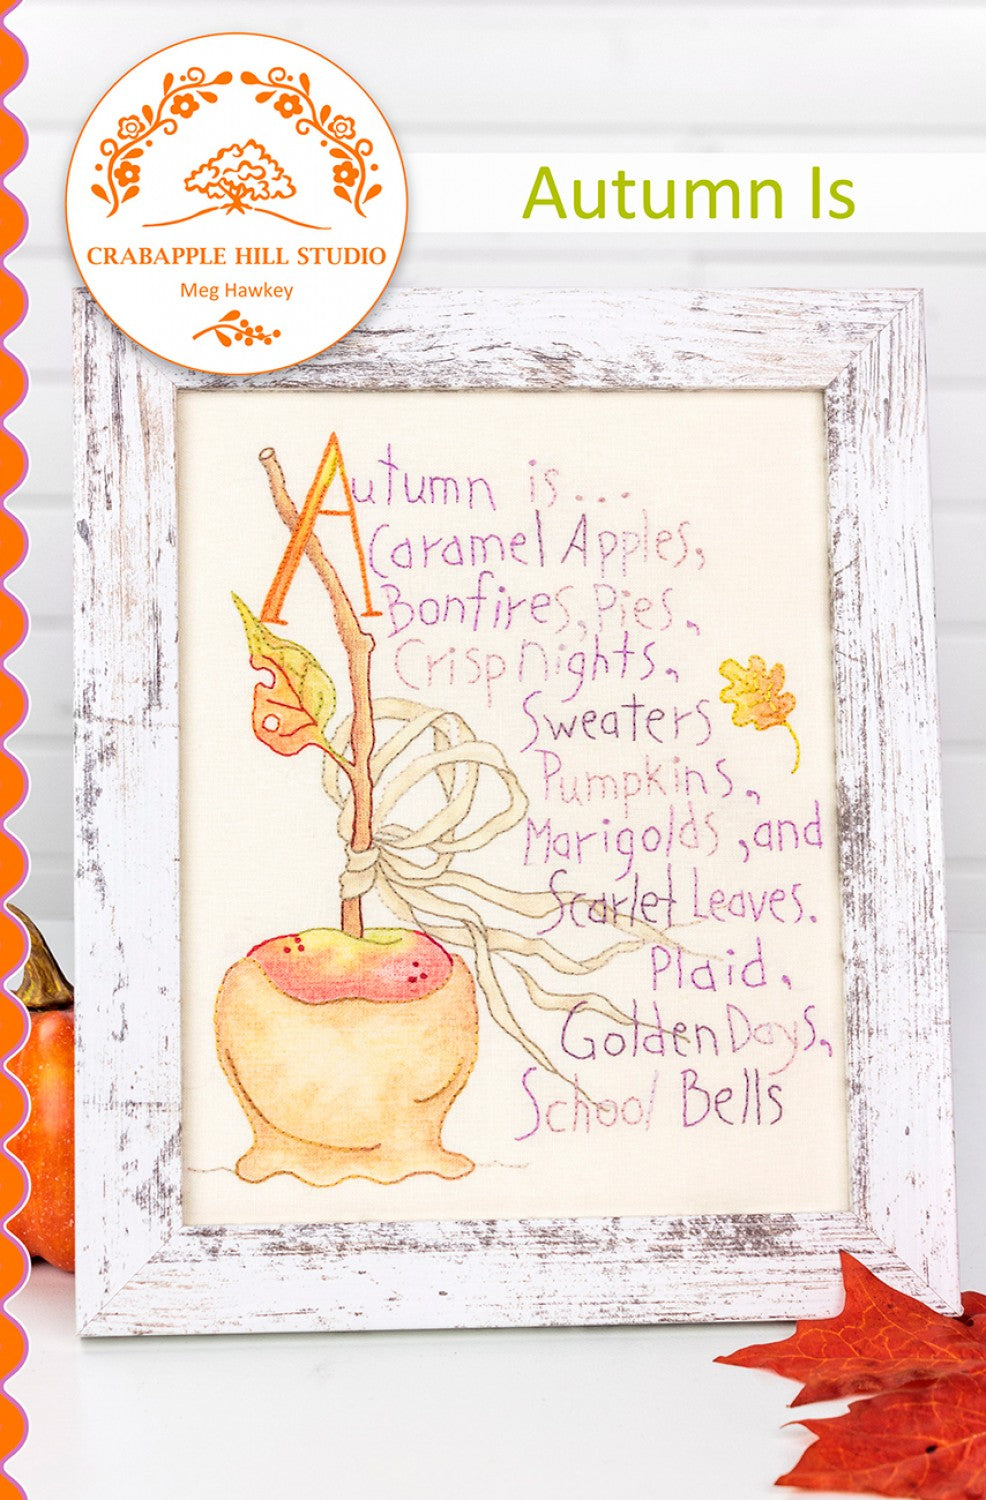 CRABAPPLE HILL STUDIO
Meg Hawkey
Autumn Is
Autumn is...
Caramel Apples,
Bonfires, Pies,
Crisp Nights,
Sweaters
Pumpkins,
Marigolds, and
Scarlet Leaves.
Plaid,
Golden Days,
School Bells